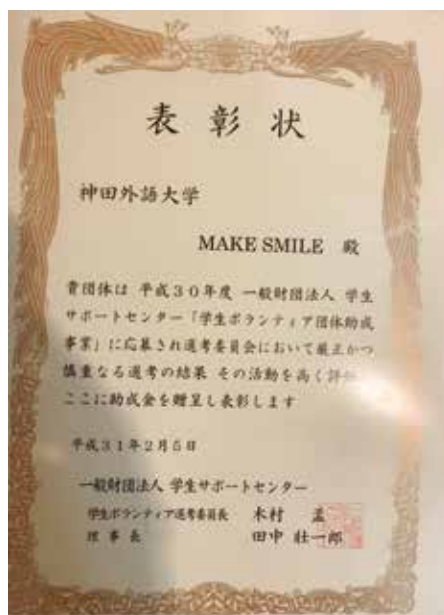 表彰状
神田外語大学
MAKE SMILE 殿
貴団体は 平成30年度 一般財団法人 学生
サポートセンター「学生ボランティア団体助成
事業」に応募され選考委員会において厳正かつ
慎重なる選考の結果 その活動を高く評
ここに助成金を贈呈し表彰します
平成31年2月5日
一般財団法人 学生サポートセンター
学生ボランティア選考委員長 木村 孟
理事長 田中 壮一郎